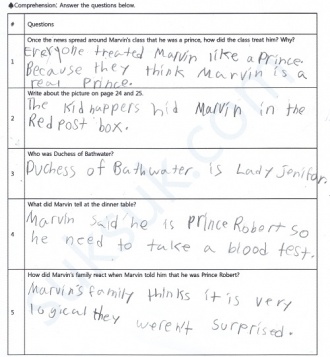 ♣Comprehension: Answer the questions below.
# Questions
Once the news spread around Marvin's class that he was a prince, how did the class treat him? Why?
1
Everyone treated Marvin like a prince.
Because they think Marvin is a
real Prince.
Write about the picture on page 24 and 25.
2
The Kidnappers hid Marvin in the
Red post box.
Who was Duchess of Bathwater?
3
Duchess of Bathwater is Lady Jenifar.
What did Marvin tell at the dinner table?
4
Marvin said he is prince Robert so
he need to take a blood test.
How did Marvin's family react when Marvin told him that he was Prince Robert?
5
Marvin's family thinks it is very
logical they weren't surprised.